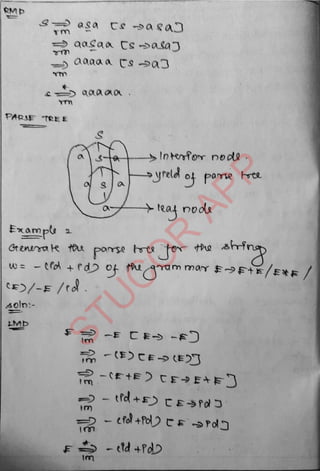 RMD
S ⇒ aSa [S → aSa]
rm
⇒ aaSaa [S → aSa]
rm
⇒ aaaaa [S → a]
rm
S *⇒ aaaaa.
rm
PARSE TREE
S
a S a → Interior node.
a S a → yield of parse tree
a → leaf node
Example 2
Generate the parse tree for the string
w = -(id + id) of the grammar E → E+E / E*E /
(E) / -E / id.
Soln:-
LMD
E ⇒ -E [E → -E]
lm
⇒ -(E) [E → (E)]
lm
⇒ -(E+E) [E → E+E]
lm
⇒ -(id+E) [E → id]
lm
⇒ -(id+id) [E → id]
lm
E *⇒ -(id+id)
lm
STUCOR APP